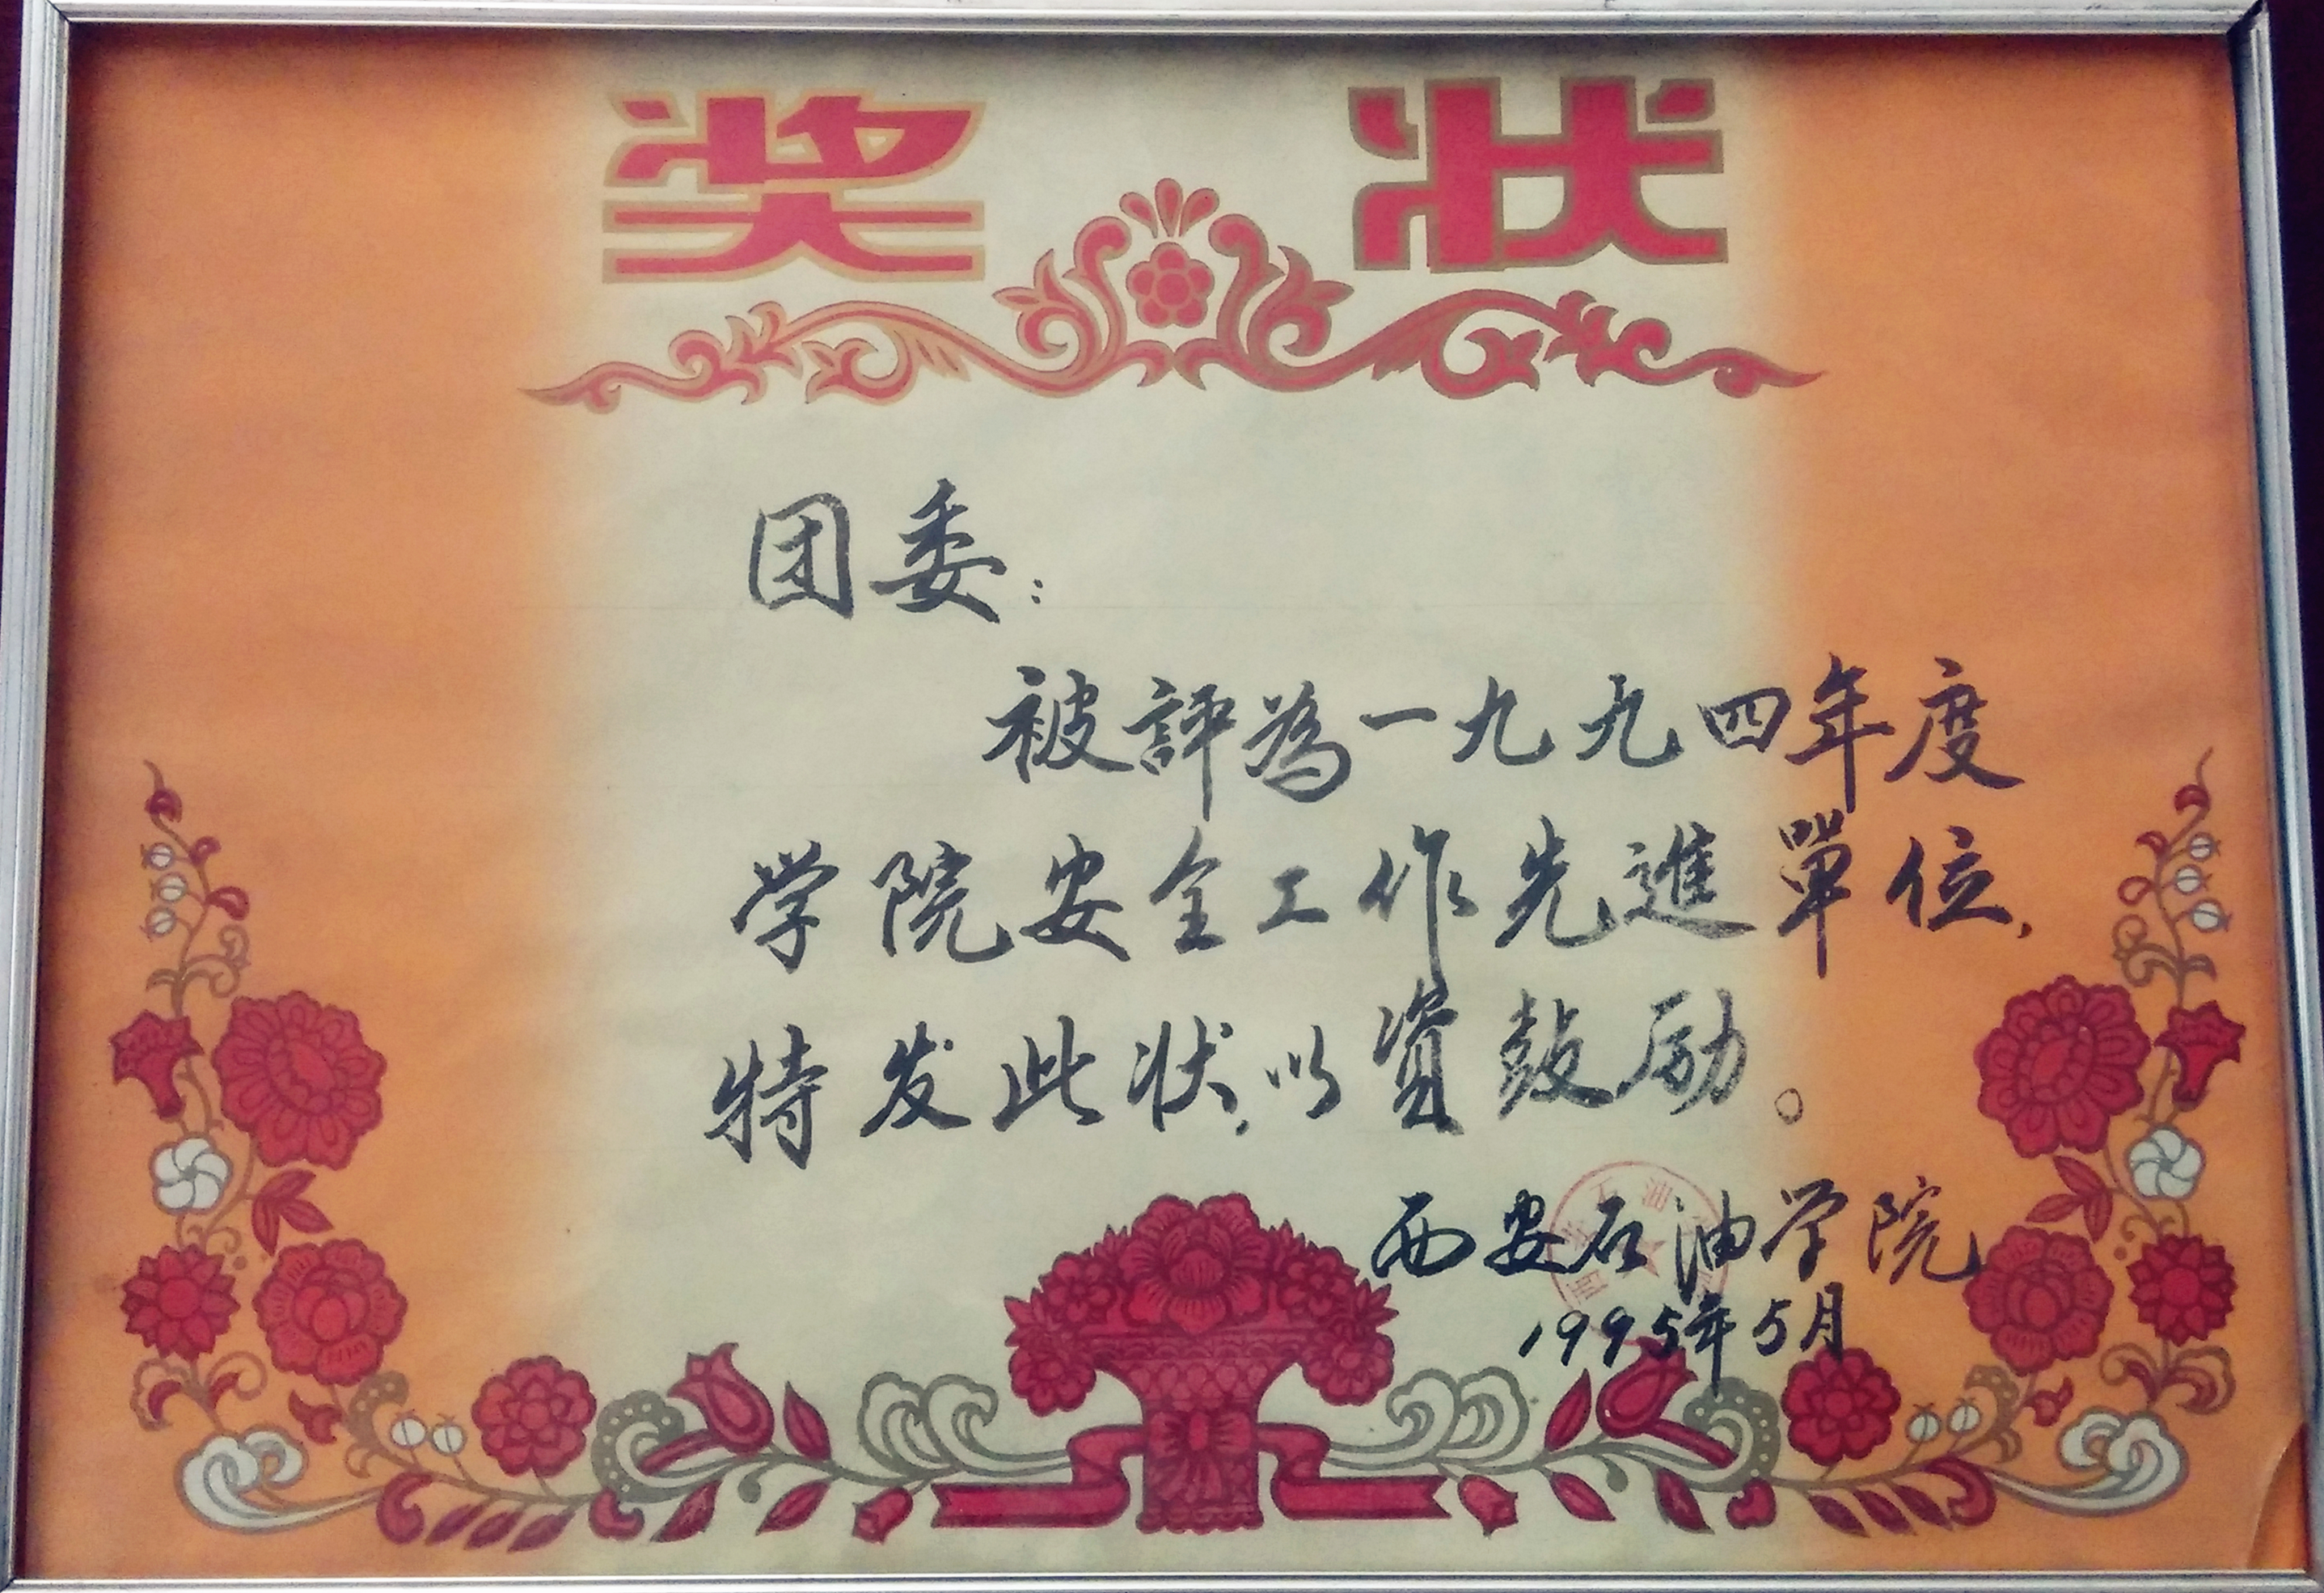 奖状
团委：
被評為一九九四年度
学院安全工作先進單位，
特发此状，以資鼓励。
西安石油学院
1995年5月